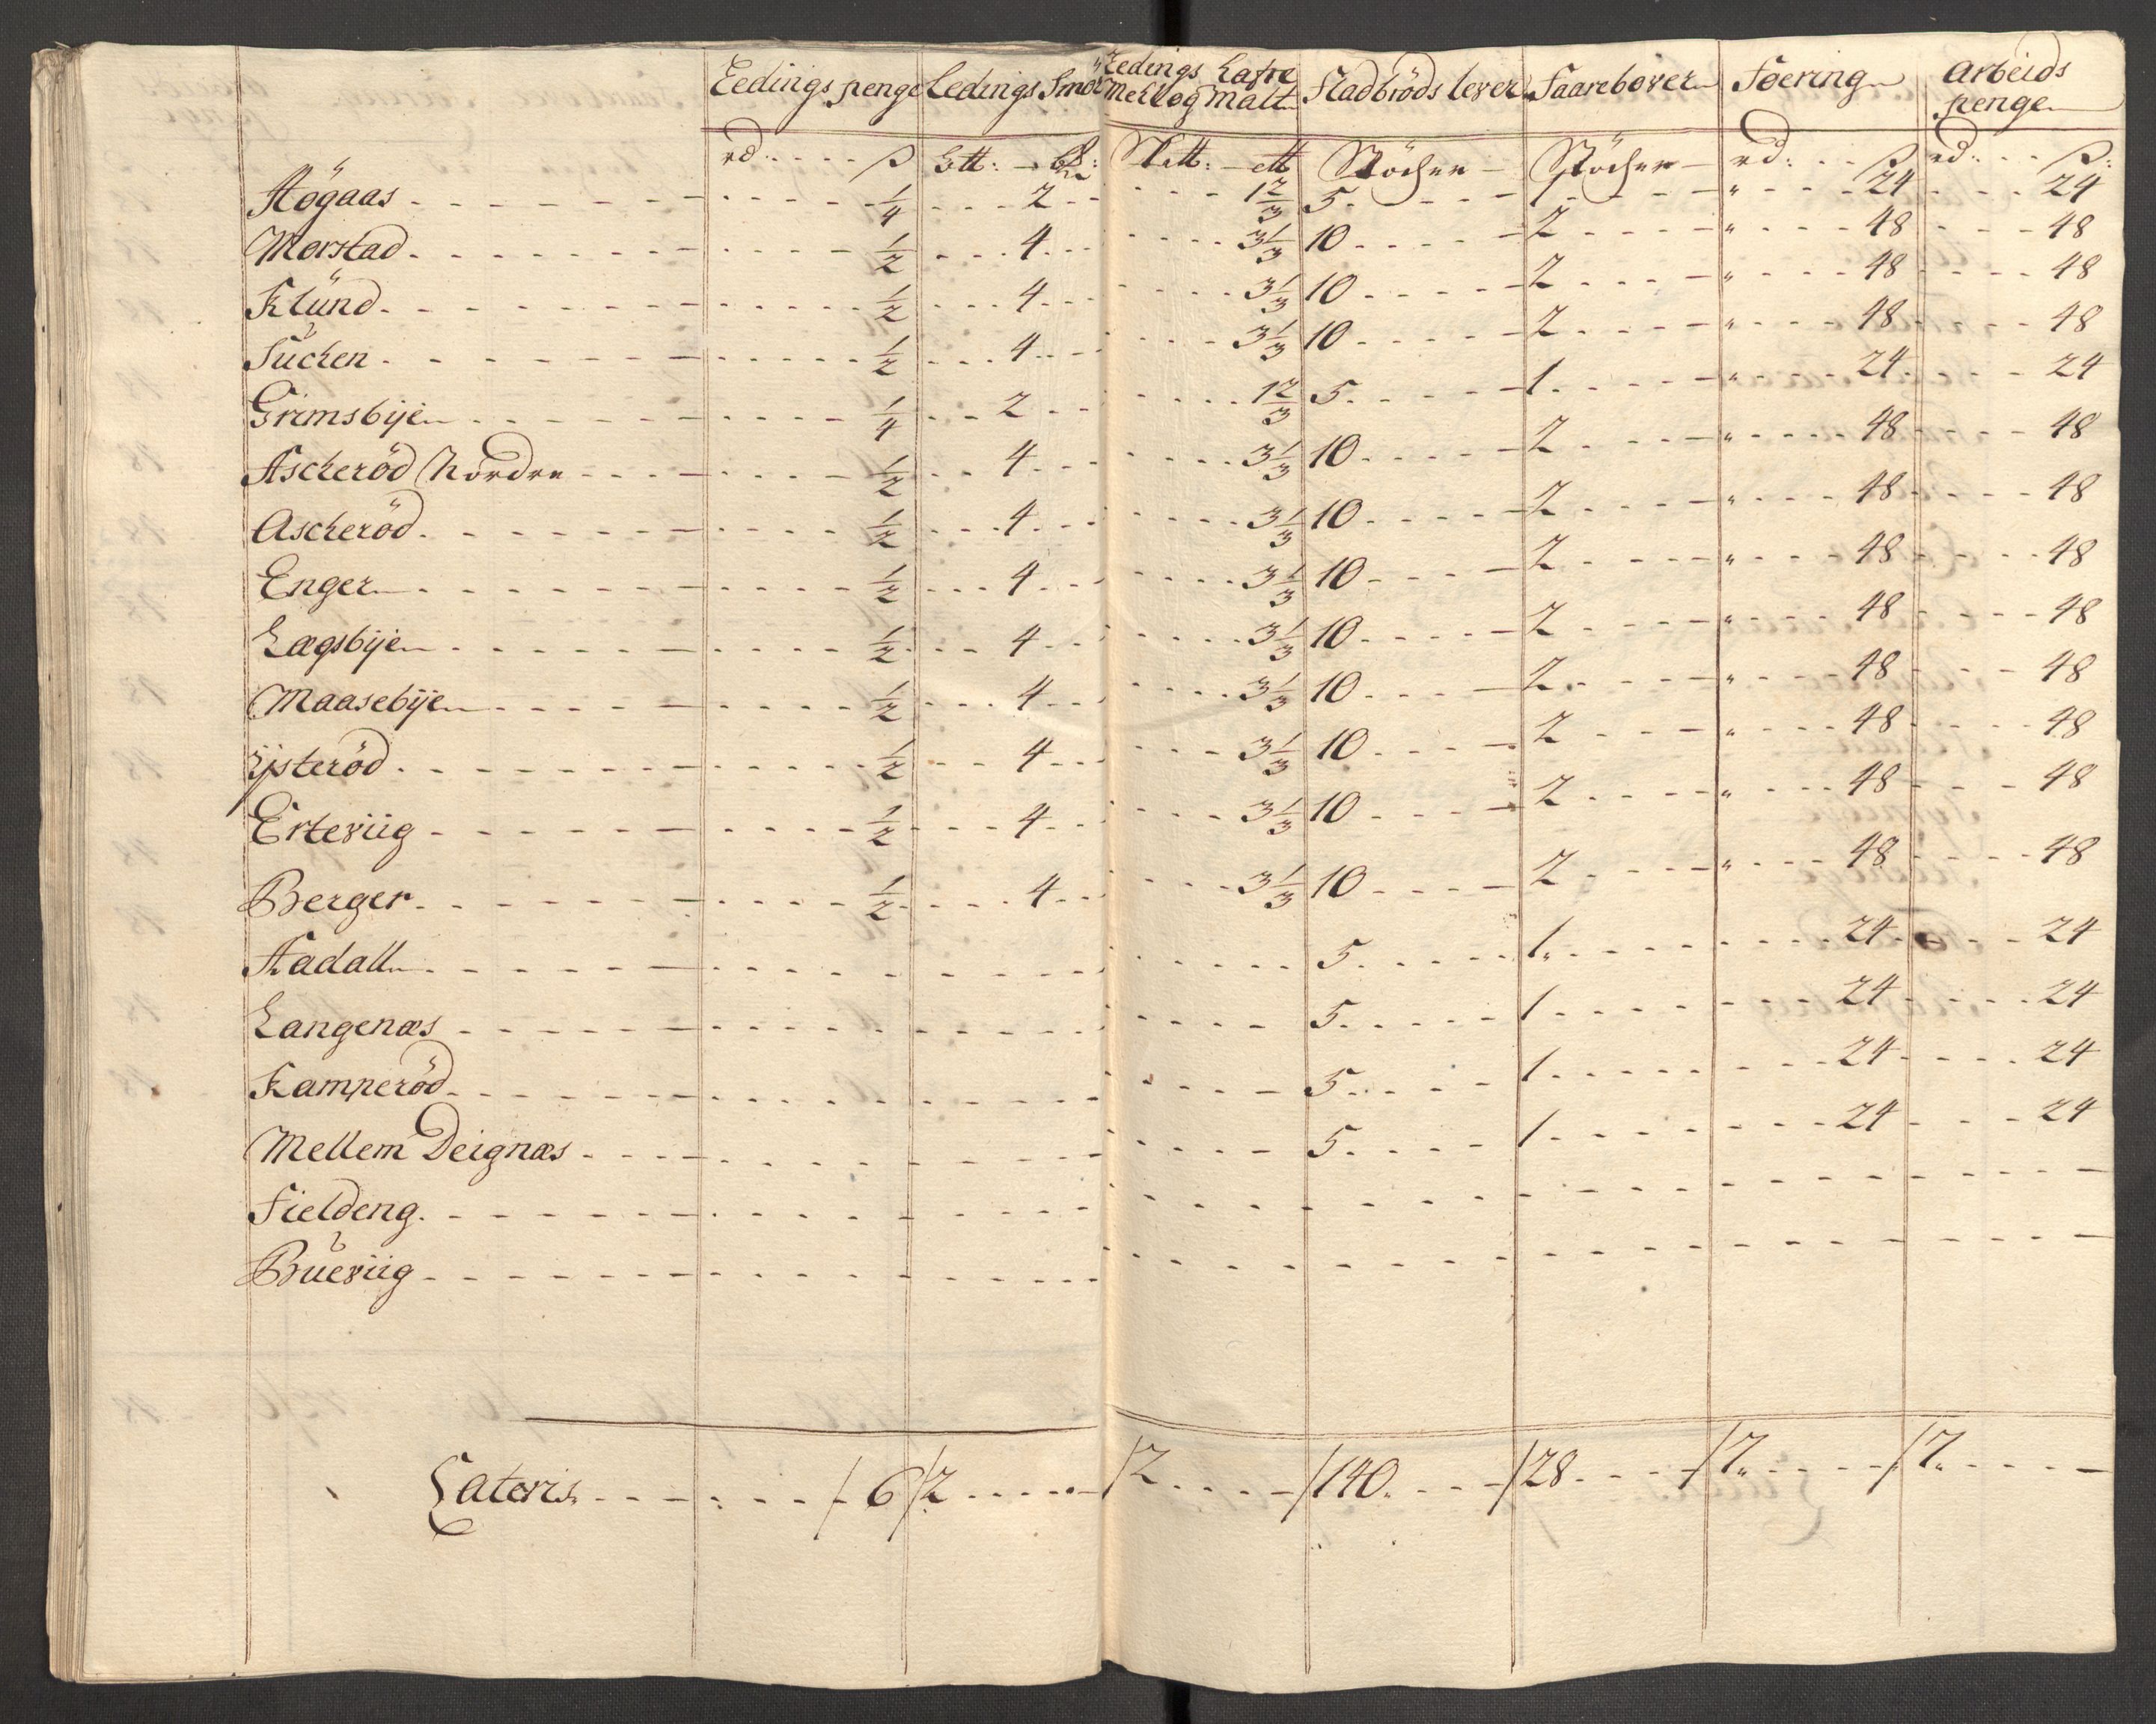 Ledings penge Ledings Smör Ledings Hafre Fladbröds lever Faarebover Foering Arbeids
Mel og Malt penge
rd: ß Ltt: Stöcher Stöcher rd: ß rd: ß:
Högaas 1/4 2 1 2/3 5 1 " 24 24
Morstad 1/2 4 3 1/3 10 2 " 48 48
Klund 1/2 4 3 1/3 10 2 " 48 48
Suchen 1/2 4 3 1/3 10 2 " 48 48
Grimsbije 1/4 2 1 2/3 5 1 " 24 24
Ascheröd Nordre 1/2 4 3 1/3 10 2 " 48 48
Ascheröd 1/2 4 3 1/3 10 2 " 48 48
Enger 1/2 4 3 1/3 10 2 " 48 48
Lægsbije 1/2 4 3 1/3 10 2 " 48 48
Maasebije 1/2 4 3 1/3 10 2 " 48 48
ijsteröd 1/2 4 3 1/3 10 2 " 48 48
Erteviig 1/2 4 3 1/3 10 2 " 48 48
Berger 1/2 4 3 1/3 10 2 " 48 48
Aadall 5 1 24 24
Langenæs 5 1 24 24
Kamperöd 5 1 24 24
Mellem Deignæs 5 1 24 24
Fieldeng
Bueviig
Lateris 6 2 2 140 28 7 7